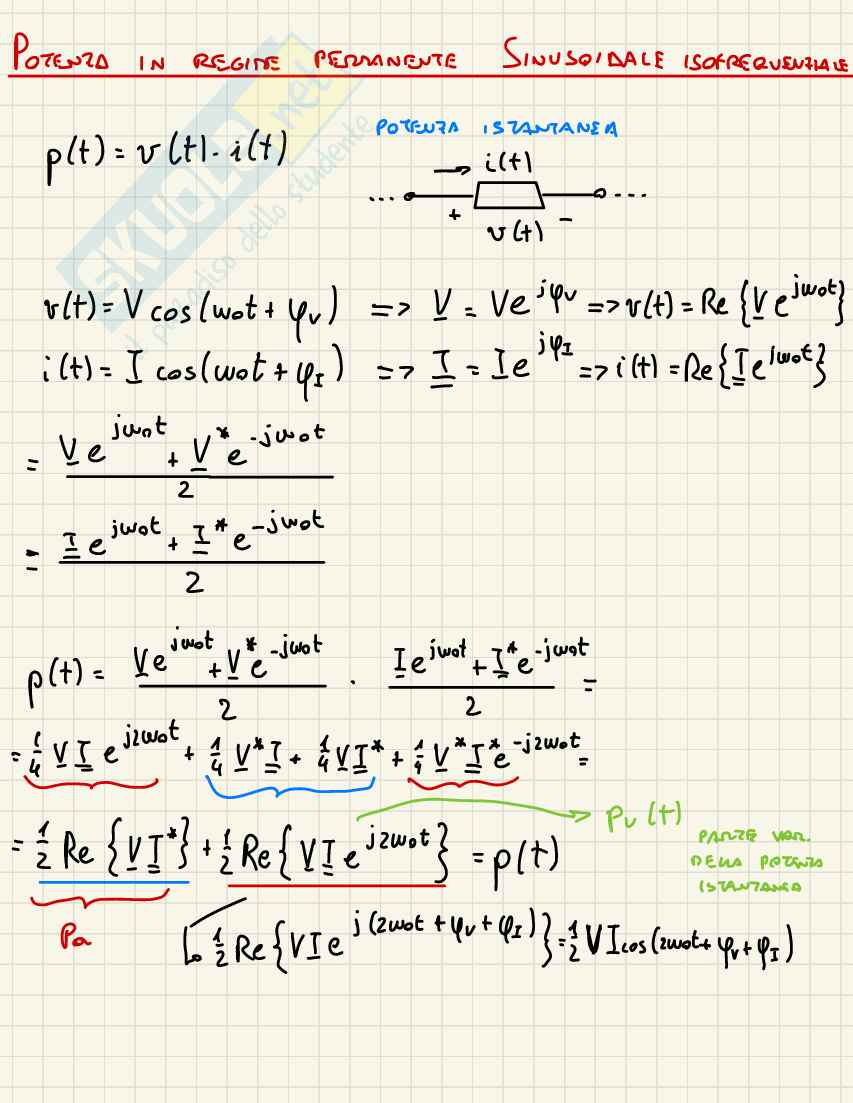 POTENZA IN REGIME PERMANENTE SINUSOIDALE ISOFREQUENZIALE
POTENZA ISTANTANEA
p(t) = v(t) · i(t)
i(t)
+ v(t) −
v(t) = V cos(ω₀t + φ_V) => V̲ = V e^{jφ_V} => v(t) = Re{V̲ e^{jω₀t}}
i(t) = I cos(ω₀t + φ_I) => I̲ = I e^{jφ_I} => i(t) = Re{I̲ e^{jω₀t}}
= (V̲ e^{jω₀t} + V̲* e^{-jω₀t}) / 2
= (I̲ e^{jω₀t} + I̲* e^{-jω₀t}) / 2
p(t) = (V̲ e^{jω₀t} + V̲* e^{-jω₀t}) / 2 · (I̲ e^{jω₀t} + I̲* e^{-jω₀t}) / 2 =
= 1/4 V̲ I̲ e^{j2ω₀t} + 1/4 V̲* I̲ + 1/4 V̲ I̲* + 1/4 V̲* I̲* e^{-j2ω₀t} =
= 1/2 Re{V̲ I̲*} + 1/2 Re{V̲ I̲ e^{j2ω₀t}} = p(t)
Pv(t)
PARTE VAR.
DELLA POTENZA
ISTANTANEA
Pa
1/2 Re{V I e^{j(2ω₀t + φ_V + φ_I)}} = 1/2 V I cos(2ω₀t + φ_V + φ_I)
SKUOLA.net
il paradiso dello studente